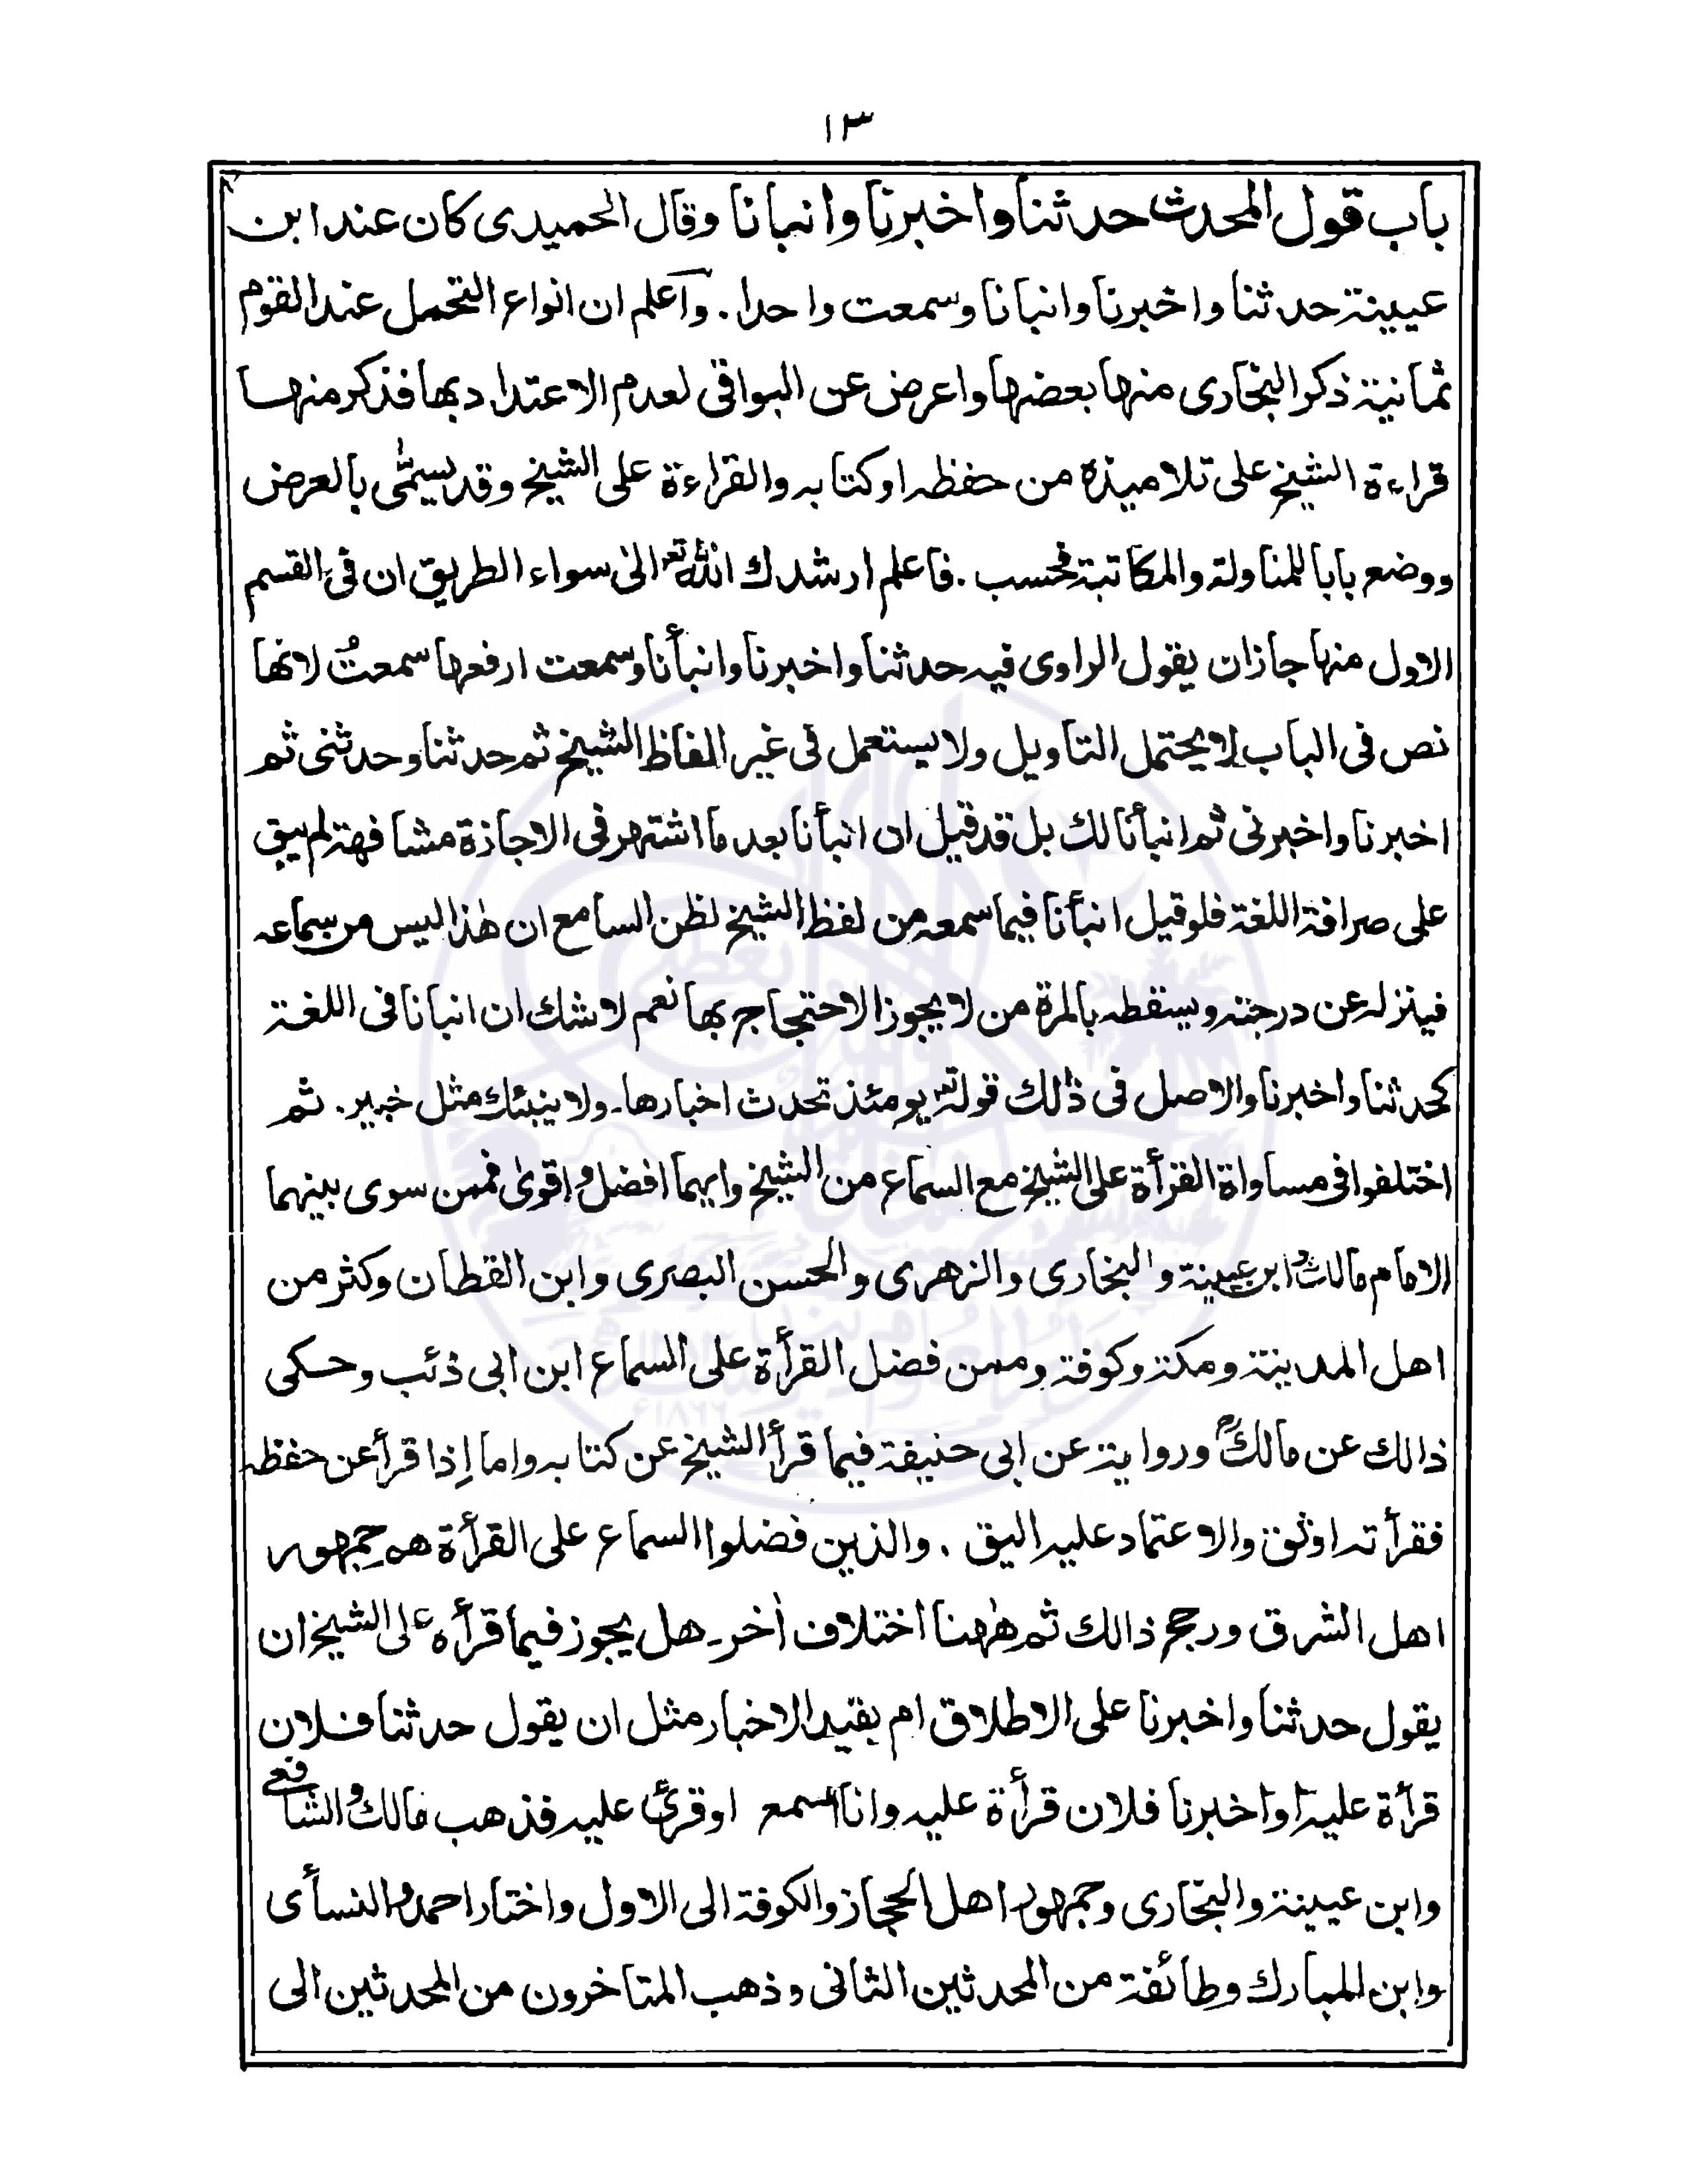 ١٣
باب قول المحدث حدثنا واخبرنا وانبانا وقال الحميدى كان عند ابن
عيينة حدثنا واخبرنا وانبانا وسمعت واحدا. واعلم ان انواع التحمل عند القوم
ثمانية ذكر البخارى منها بعضها واعرض عن البواقى لعدم الاعتداد بها فذكر منها
قراءة الشيخ على تلاميذه من حفظه او كتابه والقراءة على الشيخ وقد يسمّٰى بالعرض
ووضع بابا للمناولة والمكاتبة فحسب. فاعلم ارشدك الله تعالى الى سواء الطريق ان فى القسم
الاول منها جاز ان يقول الراوى فيه حدثنا واخبرنا وانبأنا وسمعت ارفعها سمعتُ لانها
نص فى الباب لا يحتمل التاويل ولا يستعمل فى غير الفاظ الشيخ ثم حدثنا وحدثنى ثم
اخبرنا واخبرنى ثم انبأنا لك بل قد قيل ان انبأنا بعد ما اشتهر فى الاجازة مشافهة لم يبق
على صرافة اللغة فلو قيل انبأنا فيما سمعه من لفظ الشيخ لظن السامع ان هٰذا ليس من سماعه
فينزله عن درجته ويسقطه بالمرة من لا يجوز الاحتجاج بها نعم لا شك ان انبانا فى اللغة
كحدثنا واخبرنا والاصل فى ذٰلك قوله تعـ يومئذ تحدث اخبارها۔ ولا ينبئك مثل خبير. ثم
اختلفوا فى مساواة القرأة على الشيخ مع السماع من الشيخ وايهما افضل و اقوىٰ فممن سوى بينهما
الامام مالك و ابن عيينة والبخارى والزهرى والحسن البصرى وابن القطان وكثر من
اهل المدينة ومكة وكوفة وممن فضل القرأة على السماع ابن ابى ذئب وحكى
ذالك عن مالك ورواية عن ابى حنيفة فيما قرأ الشيخ عن كتابه واما إذا قرأ عن حفظه
فقرأته اوثق والاعتماد عليه اليق. والذين فضلوا السماع على القرأة هم جمهور
اهل الشرق ورجح ذالك ثم هٰهنا اختلاف اٰخر۔ هل يجوز فيما قرأه على الشيخ ان
يقول حدثنا واخبرنا على الاطلاق ام بقيد الاخبار مثل ان يقول حدثنا فلان
قرأة عليه او اخبرنا فلان قرأة عليه وانا اسمع اوقرئ عليه فذهب مالك و الشافعى
وابن عيينة والبخارى وجمهور اهل الحجاز والكوفة الى الاول واختار احمد و النسأى
وابن المبارك وطائفة من المحدثين الثانى وذهب المتاخرون من المحدثين الى